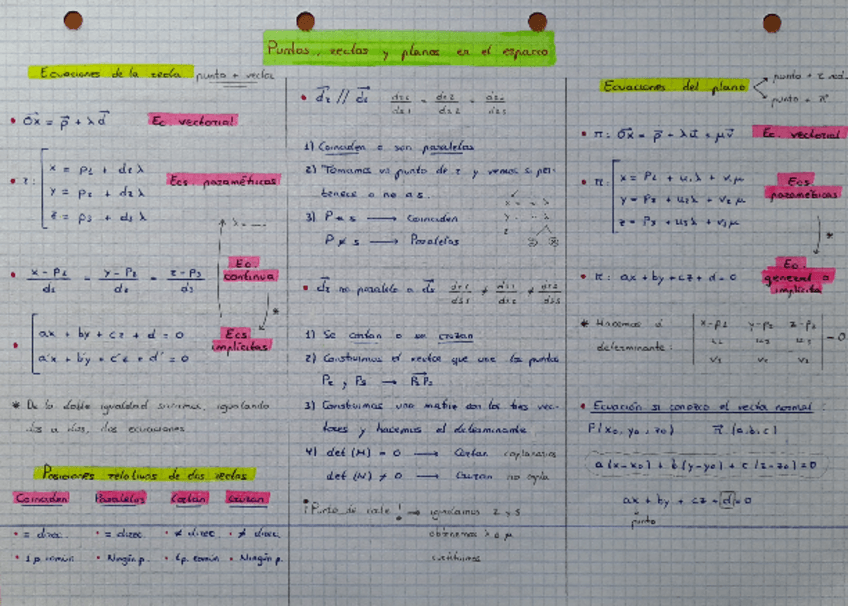 Puntos, rectas y planos en el espacio
Ecuaciones de la recta punto + vector
• OX = p + λd Ec. vectorial
• r: x = p1 + d1 λ
y = p2 + d2 λ
z = p3 + d3 λ
Ecs. paramétricas
λ = ...
• x - p1 / d1 = y - p2 / d2 = z - p3 / d3
Ec. continua
*
• ax + by + cz + d = 0
a'x + b'y + c'z + d' = 0
Ecs. implícitas
* De la doble igualdad sacamos, igualando
dos a dos, dos ecuaciones.
Posiciones relativas de dos rectas
Coinciden Paralelas Cortan Cruzan
• = direc. • = direc. • ≠ direc. • ≠ direc.
• 1 p. común • Ningún p. • 1 p. común • Ningún p.
• dr // ds dr1/ds1 = dr2/ds2 = dr3/ds3
1) Coinciden o son paralelas
2) Tomamos un punto de r y vemos si per-
tenece o no a s.
3) P ∈ s → Coinciden
P ∉ s → Paralelas
• dr no paralelo a ds dr1/ds1 ≠ dr2/ds2 ≠ dr3/ds3
1) Se cortan o se cruzan
2) Construimos el vector que une los puntos
Pr y Ps → PrPs
3) Construimos una matriz con los tres vec-
tores y hacemos el determinante
4) det (M) = 0 → Cortan coplanarios
det (M) ≠ 0 → Cruzan no copla
¡Punto de corte! → igualamos r y s
obtenemos λ o μ
sustituimos
Ecuaciones del plano
punto + 2 vec.
punto + n
• π: OX = p + λu + μv Ec. vectorial
• π: x = p1 + u1 λ + v1 μ
y = p2 + u2 λ + v2 μ
z = p3 + u3 λ + v3 μ
Ecs. paramétricas
*
• π: ax + by + cz + d = 0
Ec. general o implícita
* Hacemos el
determinante:
x-p1 y-p2 z-p3
u1 u2 u3
v1 v2 v3
= 0
• Ecuación si conozco el vector normal:
P(x0, y0, z0) n (a, b, c)
a(x-x0) + b(y-y0) + c(z-z0) = 0
ax + by + cz + d = 0
punto